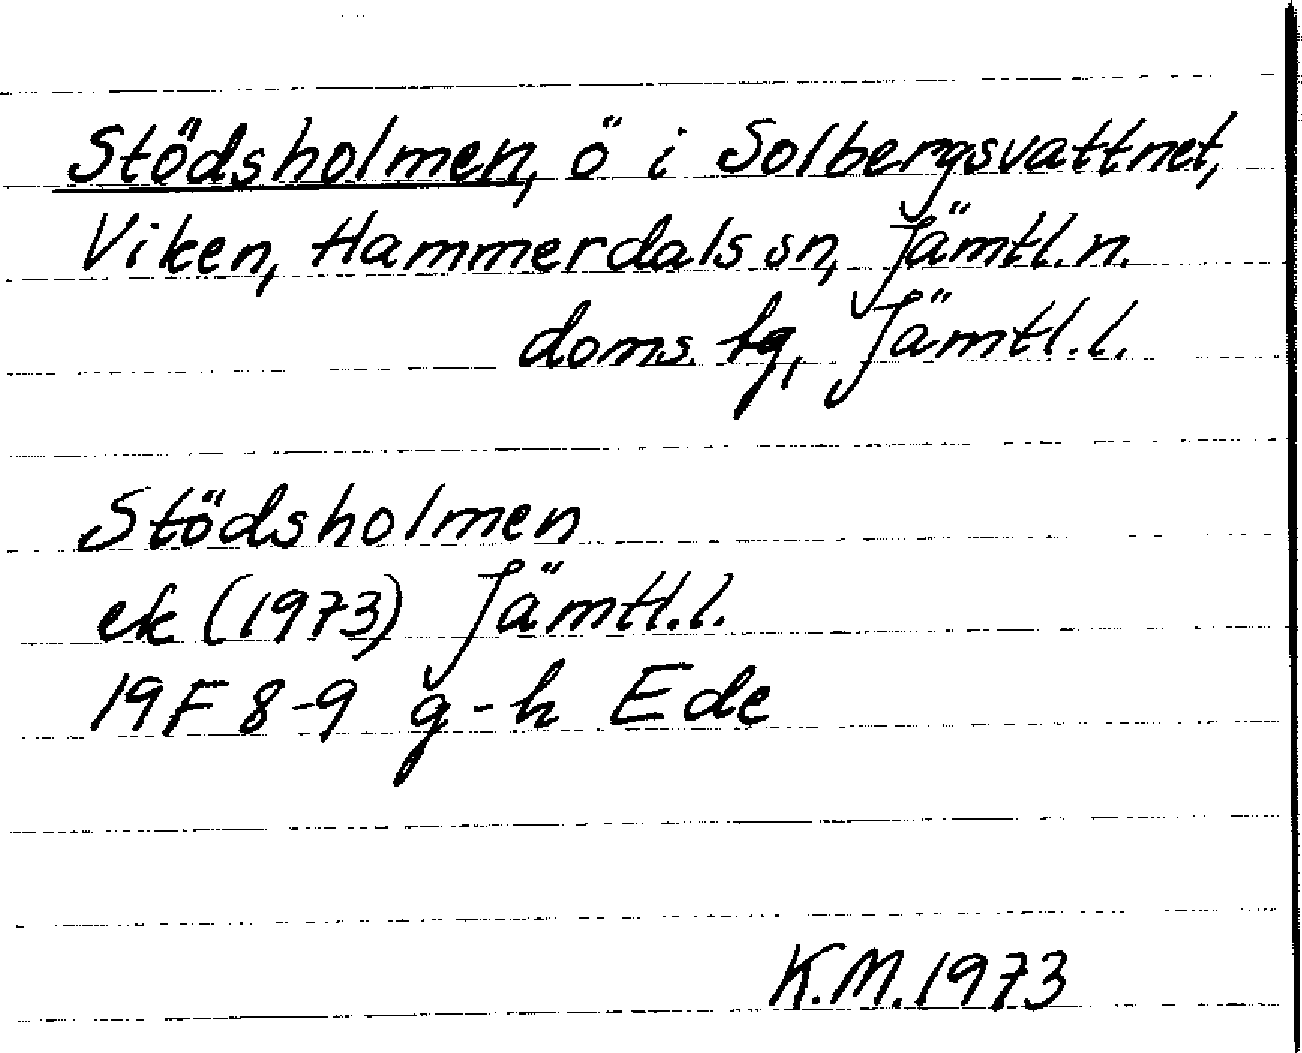 Stödsholmen, ö i Solbergsvattnet,
Viken, Hammerdals sn, Jämtl. n.
doms tg, Jämtl. l.
Stödsholmen
ek (1973) Jämtl. l.
19F 8-9 g-h Ede
K.M. 1973